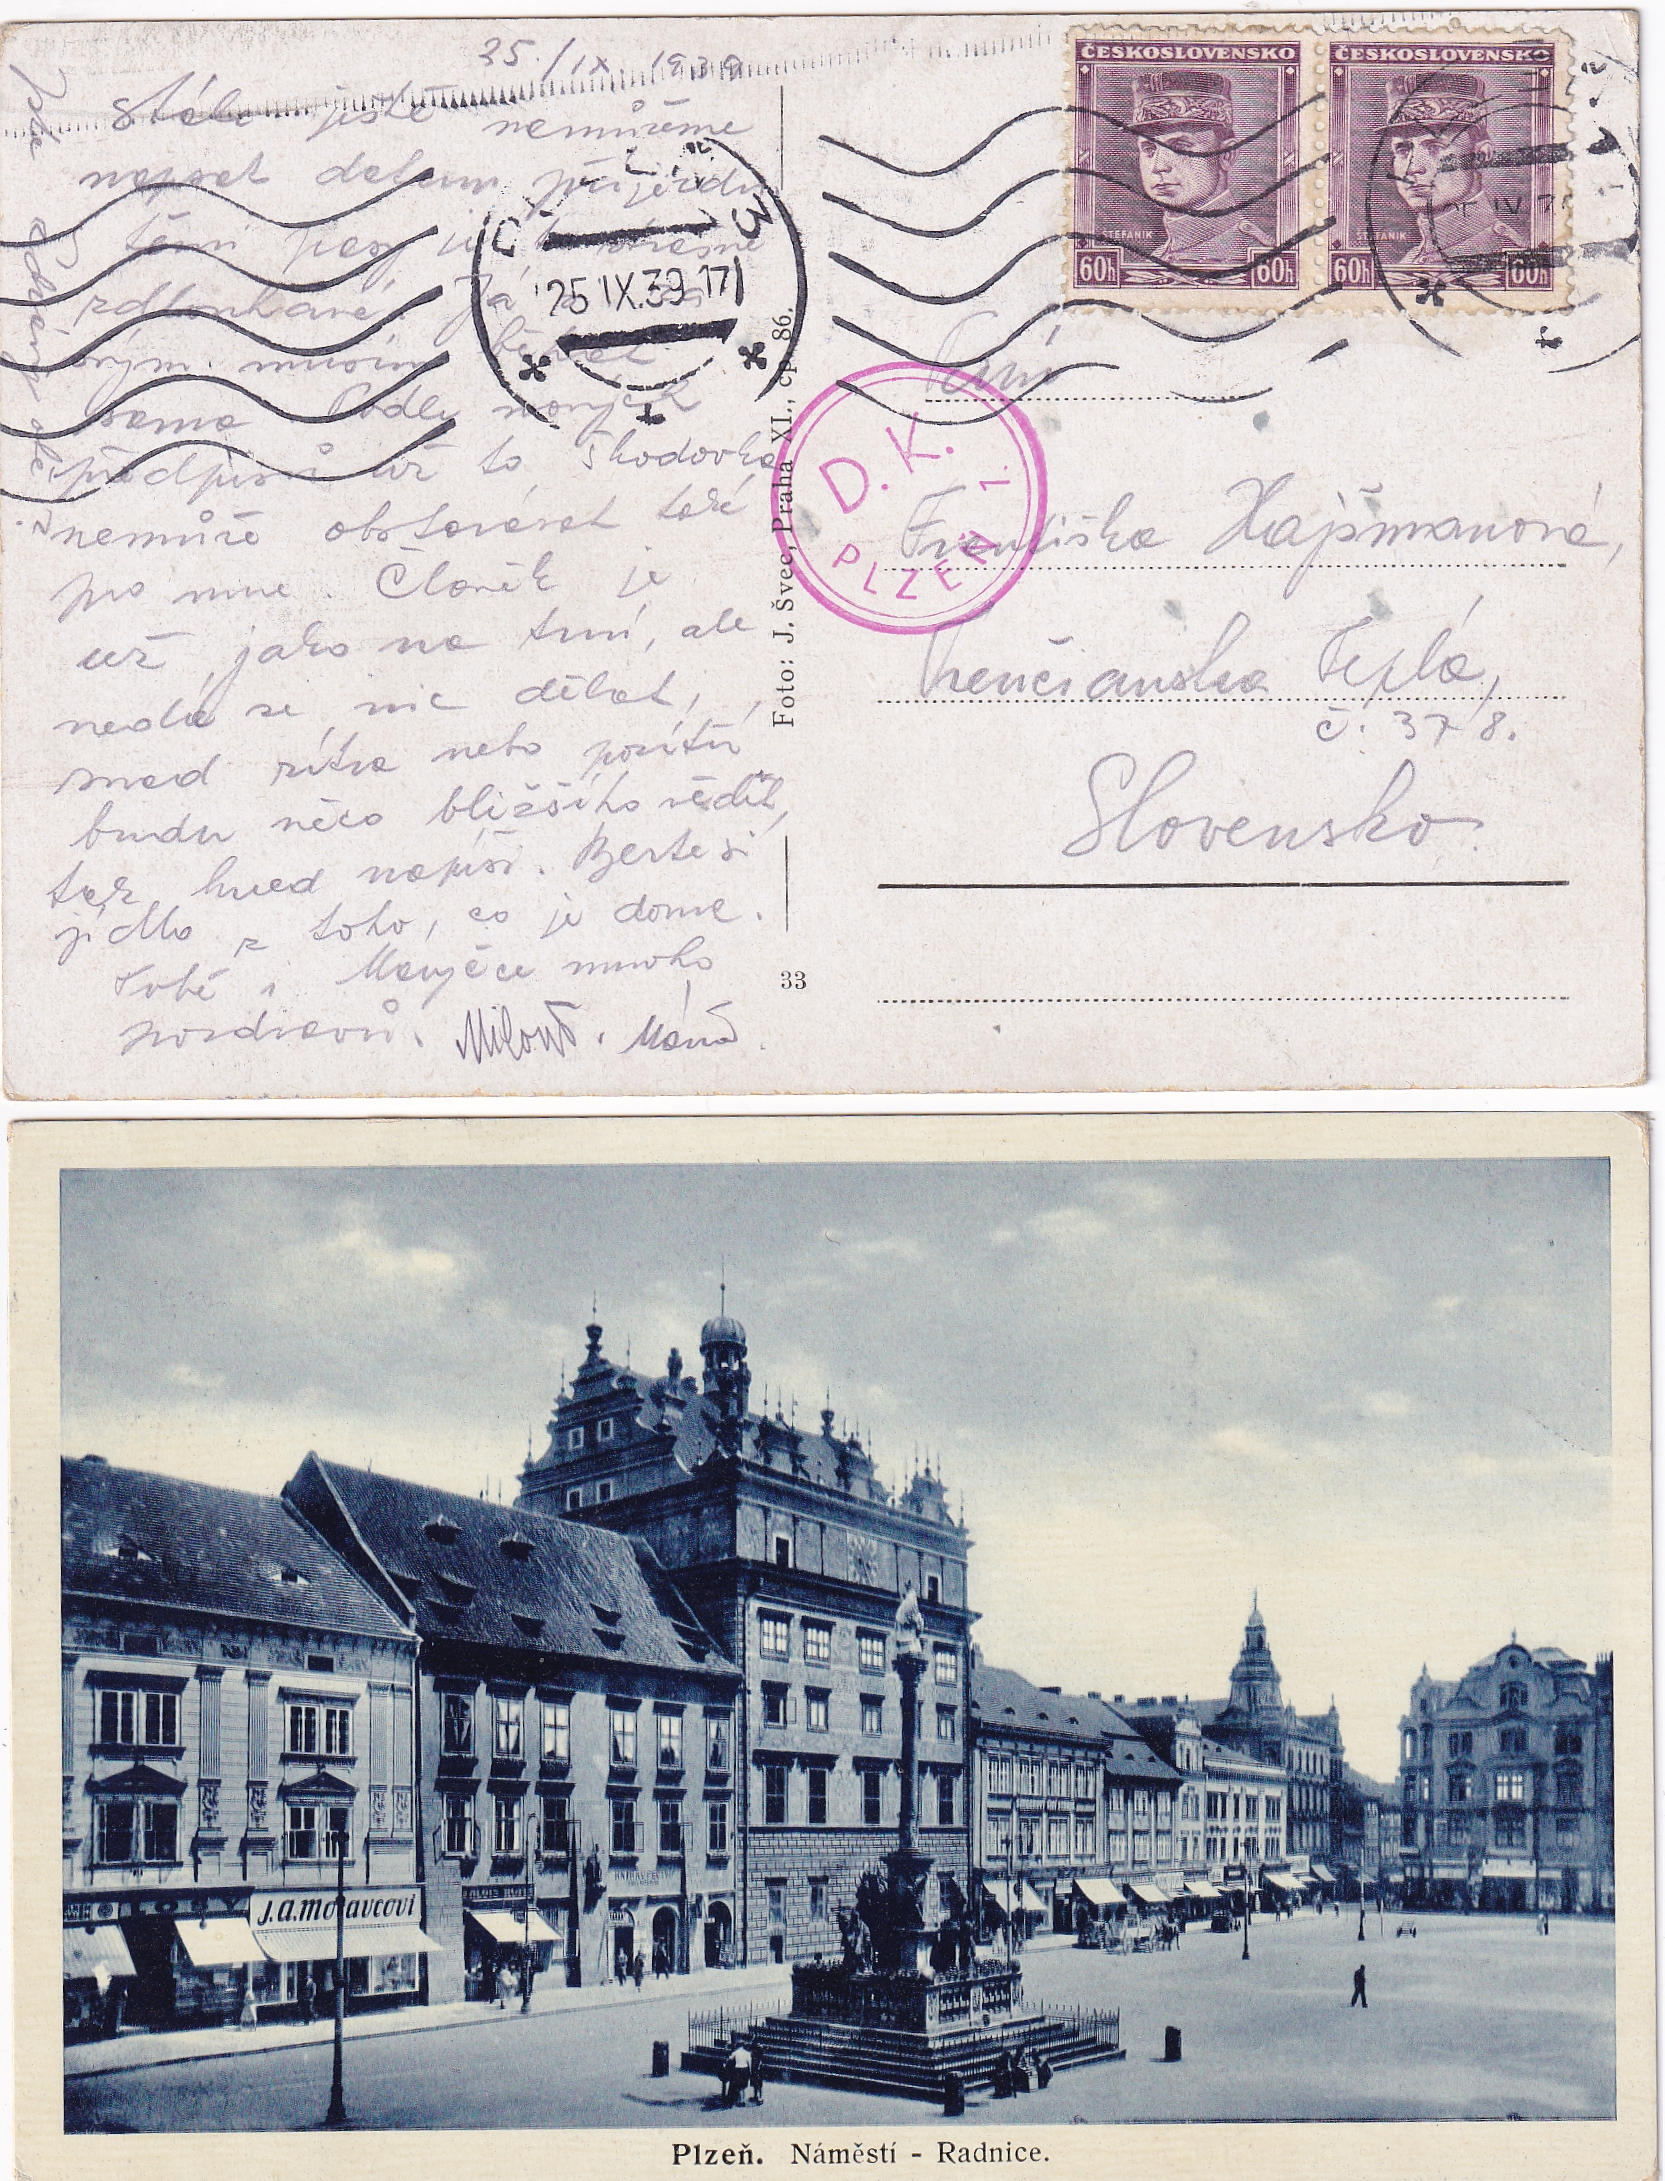 25./IX. 1939
Stále ještě nemůžeme
napsat datum příjezdu
těmi pasy je to strašně
zdlouhavé. Já
musím běhat
sama. Podle nových
předpisů už to Škodovka
nemůže obstarávat také
pro mne. Člověk je
už jako na trní, ale
nedá se nic dělat,
snad zítra nebo pozítří
budu něco bližšího vědět,
tak hned napíši. Berte si
jídlo z toho, co je doma.
Tobě i Mařječce mnoho
pozdravů. Miloš. Máňa.
ČESKOSLOVENSKO
ŠTEFANIK
60h 60h
ČESKOSLOVENSKO
ŠTEFANIK
60h 60h
3
25.IX.39.17
D. K.
PLZEŇ 1.
Foto: J. Švec, Praha XI., čp. 86.
33
Paní
Františka Hajšmanová,
Trenčianska Teplá,
č. 378.
Slovensko.
J.A.Moravcovi
Plzeň. Náměstí - Radnice.